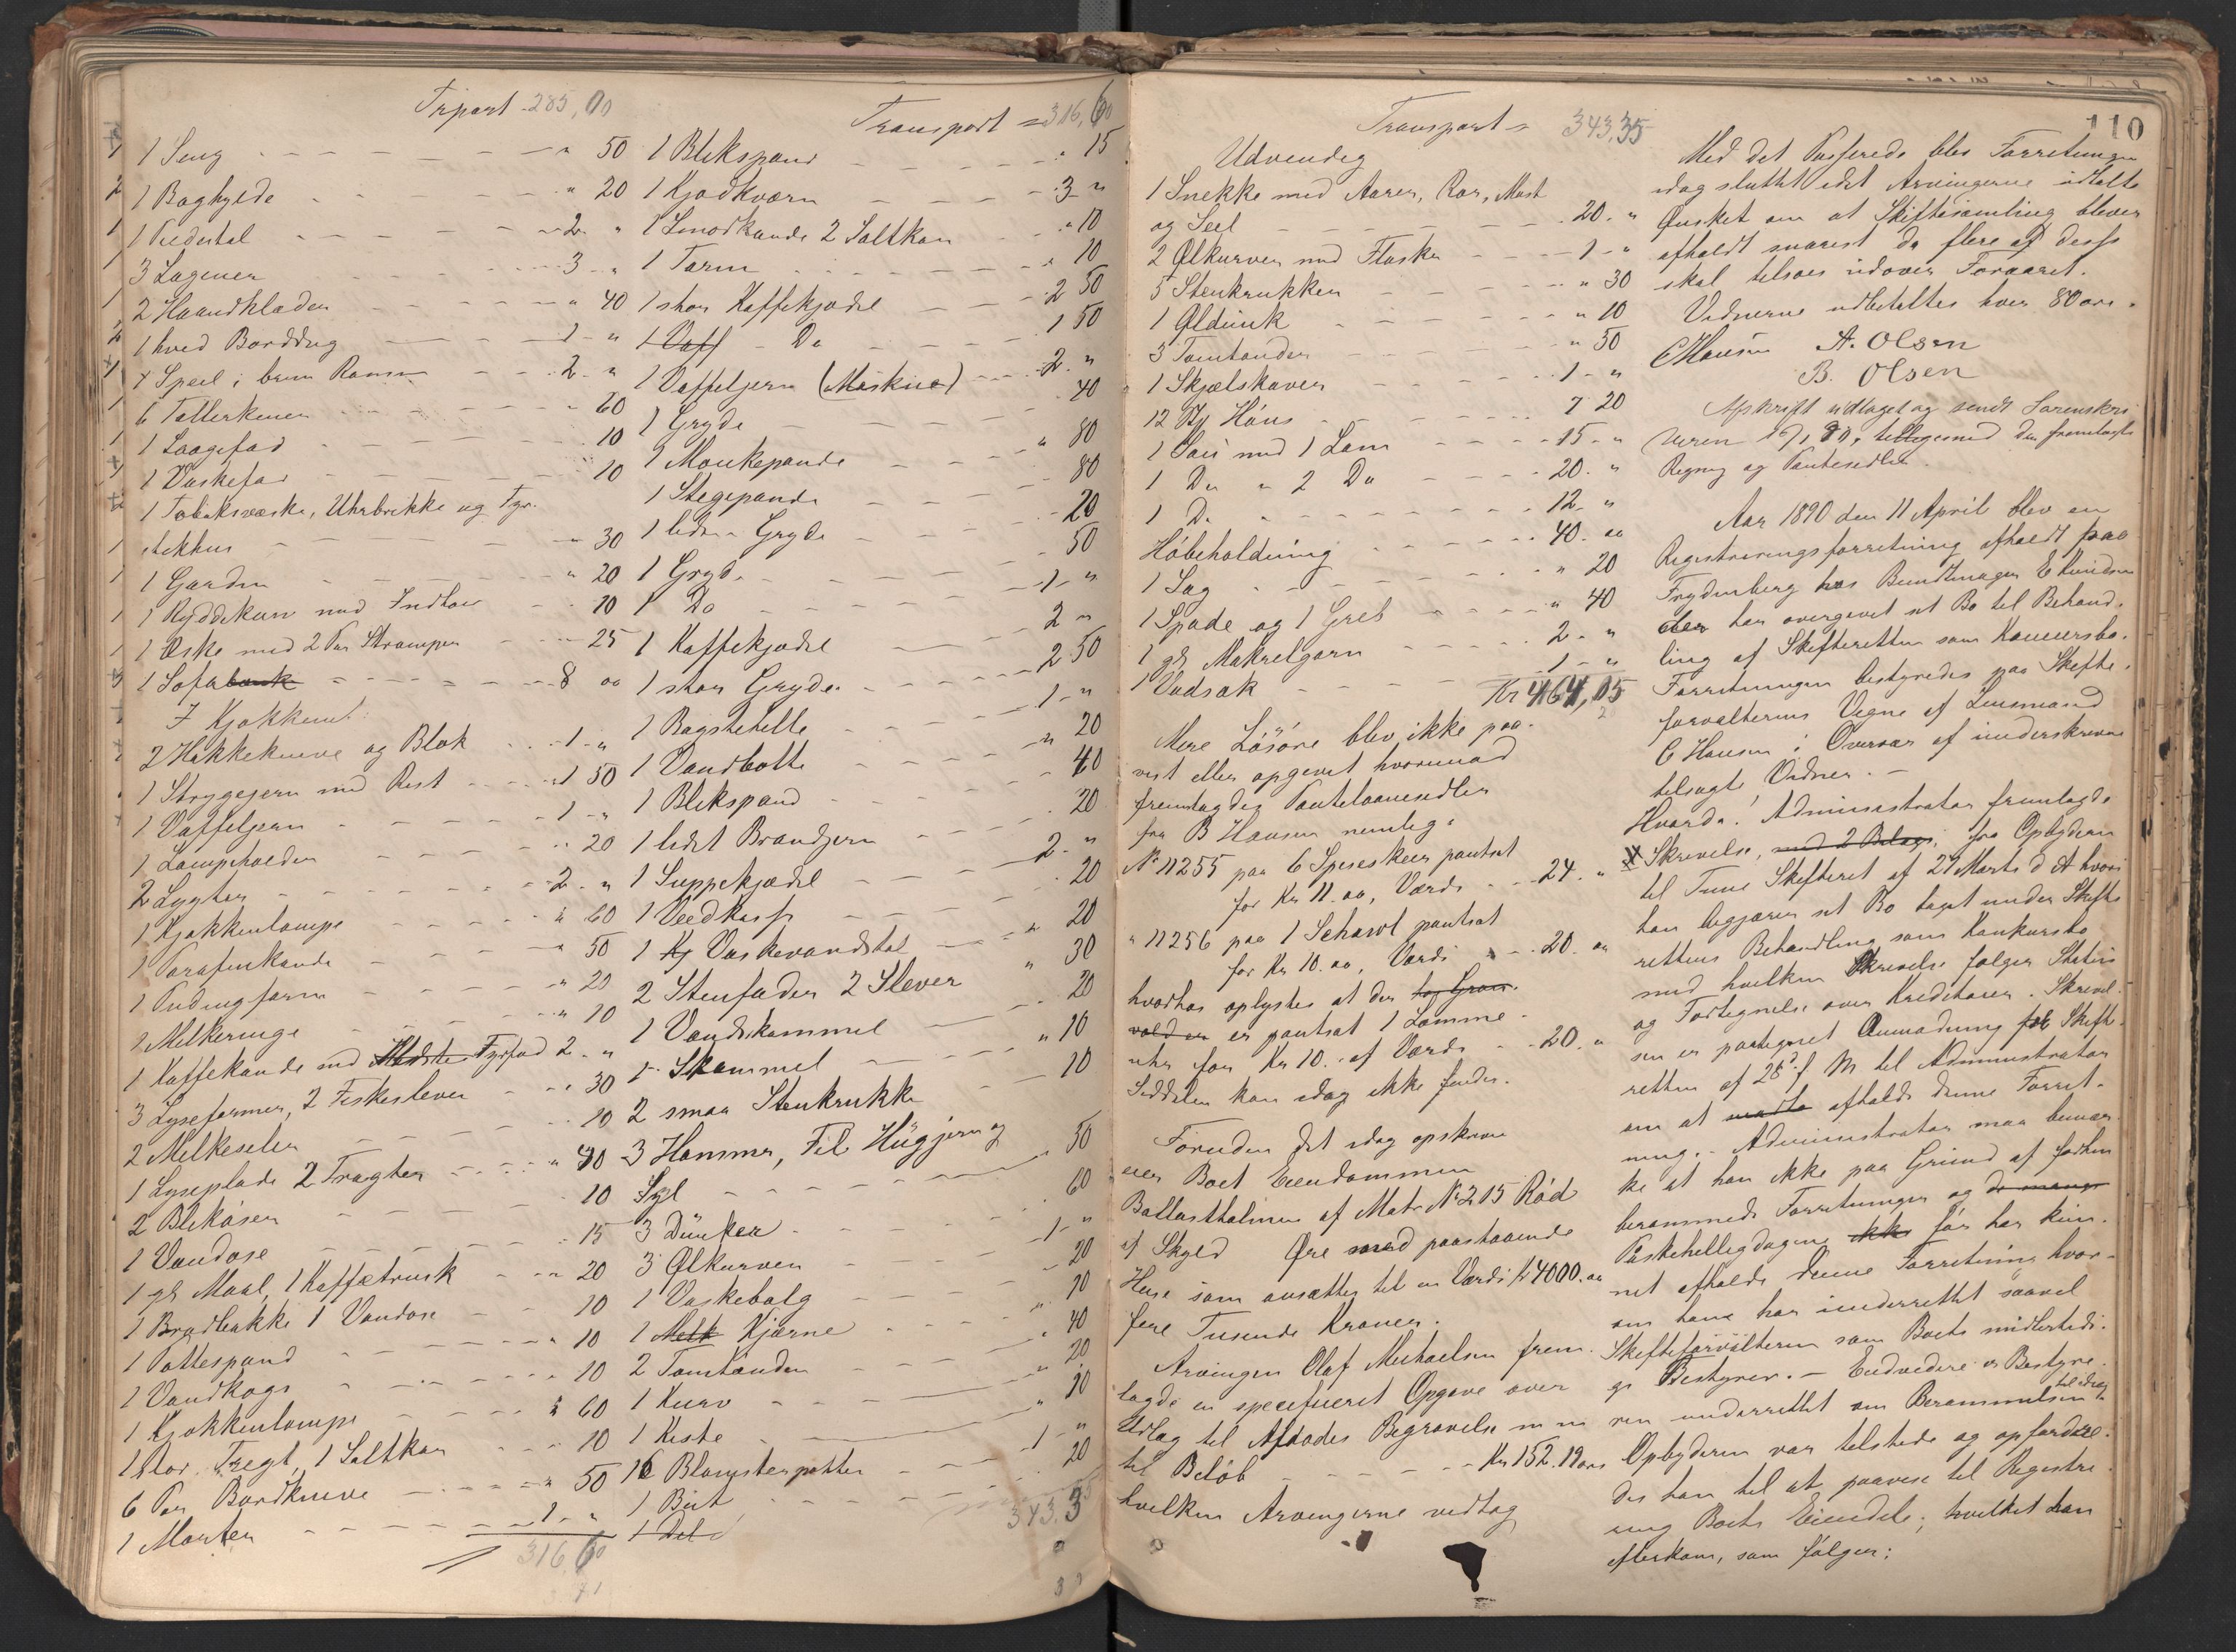 Trport 285,00
1 Seng " 50
1 Boghylde " 20
1 Piedestal 2 "
3 Lagener 3 "
2 Haandklæder " 40
1 hvid Borddug 1 "
1 Speil i brun Ramme 2 "
6 Tallerkener 60
1 Laagefad 10
1 Vaskefad 10
1 Tobaksæske, Uhrbrikke og Fyr-
stikhus " 30
1 Gardin " 20
1 Æske med 2 Par Strømper 25
1 Sofabænk 8 00
I Kjøkkenet
2 Hakkeknive og Blok 1 "
1 Strygejern med Rist 1 50
1 Vaffeljern 1 "
1 Lampeholder " 20
2 Lygter 2 "
1 Kjøkkenlampe " 60
1 Parafinkande " 50
1 Pudingform " 20
1 Melkeringe " 10
1 Kaffekande med Fyrfad 2 "
3 Lyseformer, 2 Fiskeslever 30
2 Melkesiler 10
1 Lyseplade 2 Tragter " 40
2 Blikdaser 10
1 Vandøse 15
1 gl Maal, 1 Kaffetragt 20
1 Brødbakke 1 Vandøse 10
1 Pottespand 10
1 Vandkogs 10
1 Kjøkkenlampe " 60
1 stor Tregt, 1 Saltkar 10
6 Par Bordknive " 50
1 Morter 1 "
316,60
Transport 316,60
1 Blikspand " 15
1 Kjødkværn 3 "
1 Smørkande 2 Saltkar " 10
1 Form " 10
1 stor Kaffekjedel 2 50
1 Vaff Do 1 50
1 Vaffeljern (Maskine) 2 "
1 Gryde 40
1 Monkepande " 80
1 Stegepande 80
1 liden Gryde 20
1 Gryde 50
1 Do 1 "
1 Kaffekjedel 2 "
1 stor Gryde 2 50
1 Bagstehelle 1 "
1 Vandbøtte " 20
1 Blikspand 40
1 lidet Brandjern 20
1 Suppekjedel 2 "
1 Vedkasse 20
1 Kj Vaskevandstol " 20
2 Stenfader 2 Slever " 30
1 Vandskammel 20
1 Skammel " 10
2 smaa Stenkrukker 10
3 Hammer, Fil Hugjern og
Syl 50
3 Dunker 60
3 Ølkurver 1 "
1 Vaskebalg 20
1 Melk Kjærne 10
2 Tomtønder 40
1 Kurv 20
1 Kiste 10
16 Blomsterpotter 1 "
1 Bøt 20
1 Del
343.35
Transport 343,35
Udvendig
1 Snekke med Aarer, Ror, Mast
og Seil 20 "
2 Ølkurver med Flasker 1 "
5 Stenkrukker " 30
1 Øldunk " 10
3 Tomtønder " 50
1 Skjælskaver 1 "
12 St Høns 7 20
1 Sau med 1 Lam 15 "
1 Do " 2 Do 20 "
1 Do 12 "
Høbeholdning 40 00
1 Sag " 20
1 Spade og 1 Greb " 40
1 gl Makrelgarn 2 "
1 Vadsæk 1 "
Kr 464,05
Mere Løsøre blev ikke paa-
vist eller opgivet hvorimod
fremlagdes Pantelaanssedler
fra B Hansen nemlig:
No 11255 paa 6 Spiseskeer pantsat
for Kr 11.00, Værdi 24 "
" 11256 paa 1 Schawl pantsat
for Kr 10.00, Værdi 20 00
hvorhos oplystes at der
er pantsat 1 Lomme-
uhr for Kr 10. af Værdi 20 "
Seddelen kan idag ikke findes.
Foruden det idag opskrevne
eier Boet Eiendommen
Ballastholmen af Matr No 215 Rød
af Skyld Øre med paastaaende
Huse som ansættes til en Værdi kr 4000.00
fire Tusende Kroner.
Arvingen Olaf Michaelsen frem-
lagde en specificeret Opgave over
Udlæg til Afdødes Begravelse m m
til Beløb Kr 152.19 øre
hvilken Arvingerne vedtog
110
Med det Passerede blev Forretningen
idag sluttet idet Arvingerne udtalte
Ønsket om at Skiftesamling bliver
afholdt snarest da flere af disse
skal tilsøes udover Foraaret.
Vidnerne udbetaltes hver 80 øre.
C Hansen A. Olsen
B. Olsen
Afskrift udtaget og sendt Sorenskri-
veren tilligemed den fremlagte
Regning og Pantesedler.
Aar 1890 den 11 April blev en
Registreringsforretning afholdt paa
Frydenberg hos Bundtmager E
der har overgivet sit Bo til Behand-
ling af Skifteretten som Konkursbo.
Forretningen bestyredes paa Skifte-
forvalterens Vegne af Lensmand
C Hansen i Overvær af underskrevne
tilsagte Vidner.
Hvorda! Administrator fremlagde
Skrivelse, med 2 Bilage, fra Opbyderen
til Tune Skifteret af 27 Marts d A hvori
han begjærer sit Bo taget under Skifte-
rettens Behandling som Konkursbo
med hvilken Skrivelse følger Status
og Fortegnelse over Kreditorer. Skrivel-
sen er paategnet Anmodning fra Skifte-
retten af 28d f M til Administrator
om at afholde denne Forret-
ning. Administrator maa bemær-
ke at han ikke paa Grund af forhen
berammede Forretninger og de mange
Paaskehelligdagene ikke før har kun-
net afholde denne Forretning hvor-
om han har underrettet saavel
Skifteforvalteren som Boets midlertidi-
ge Bestyrer. Endvidere er Bestyre-
ren underrettet om Berammelsen til idag
Opbyderen var tilstede og opfordre-
des han til at paavise til Registre-
ring Boets Eiendele; hvilket han
efterkom, som følger: